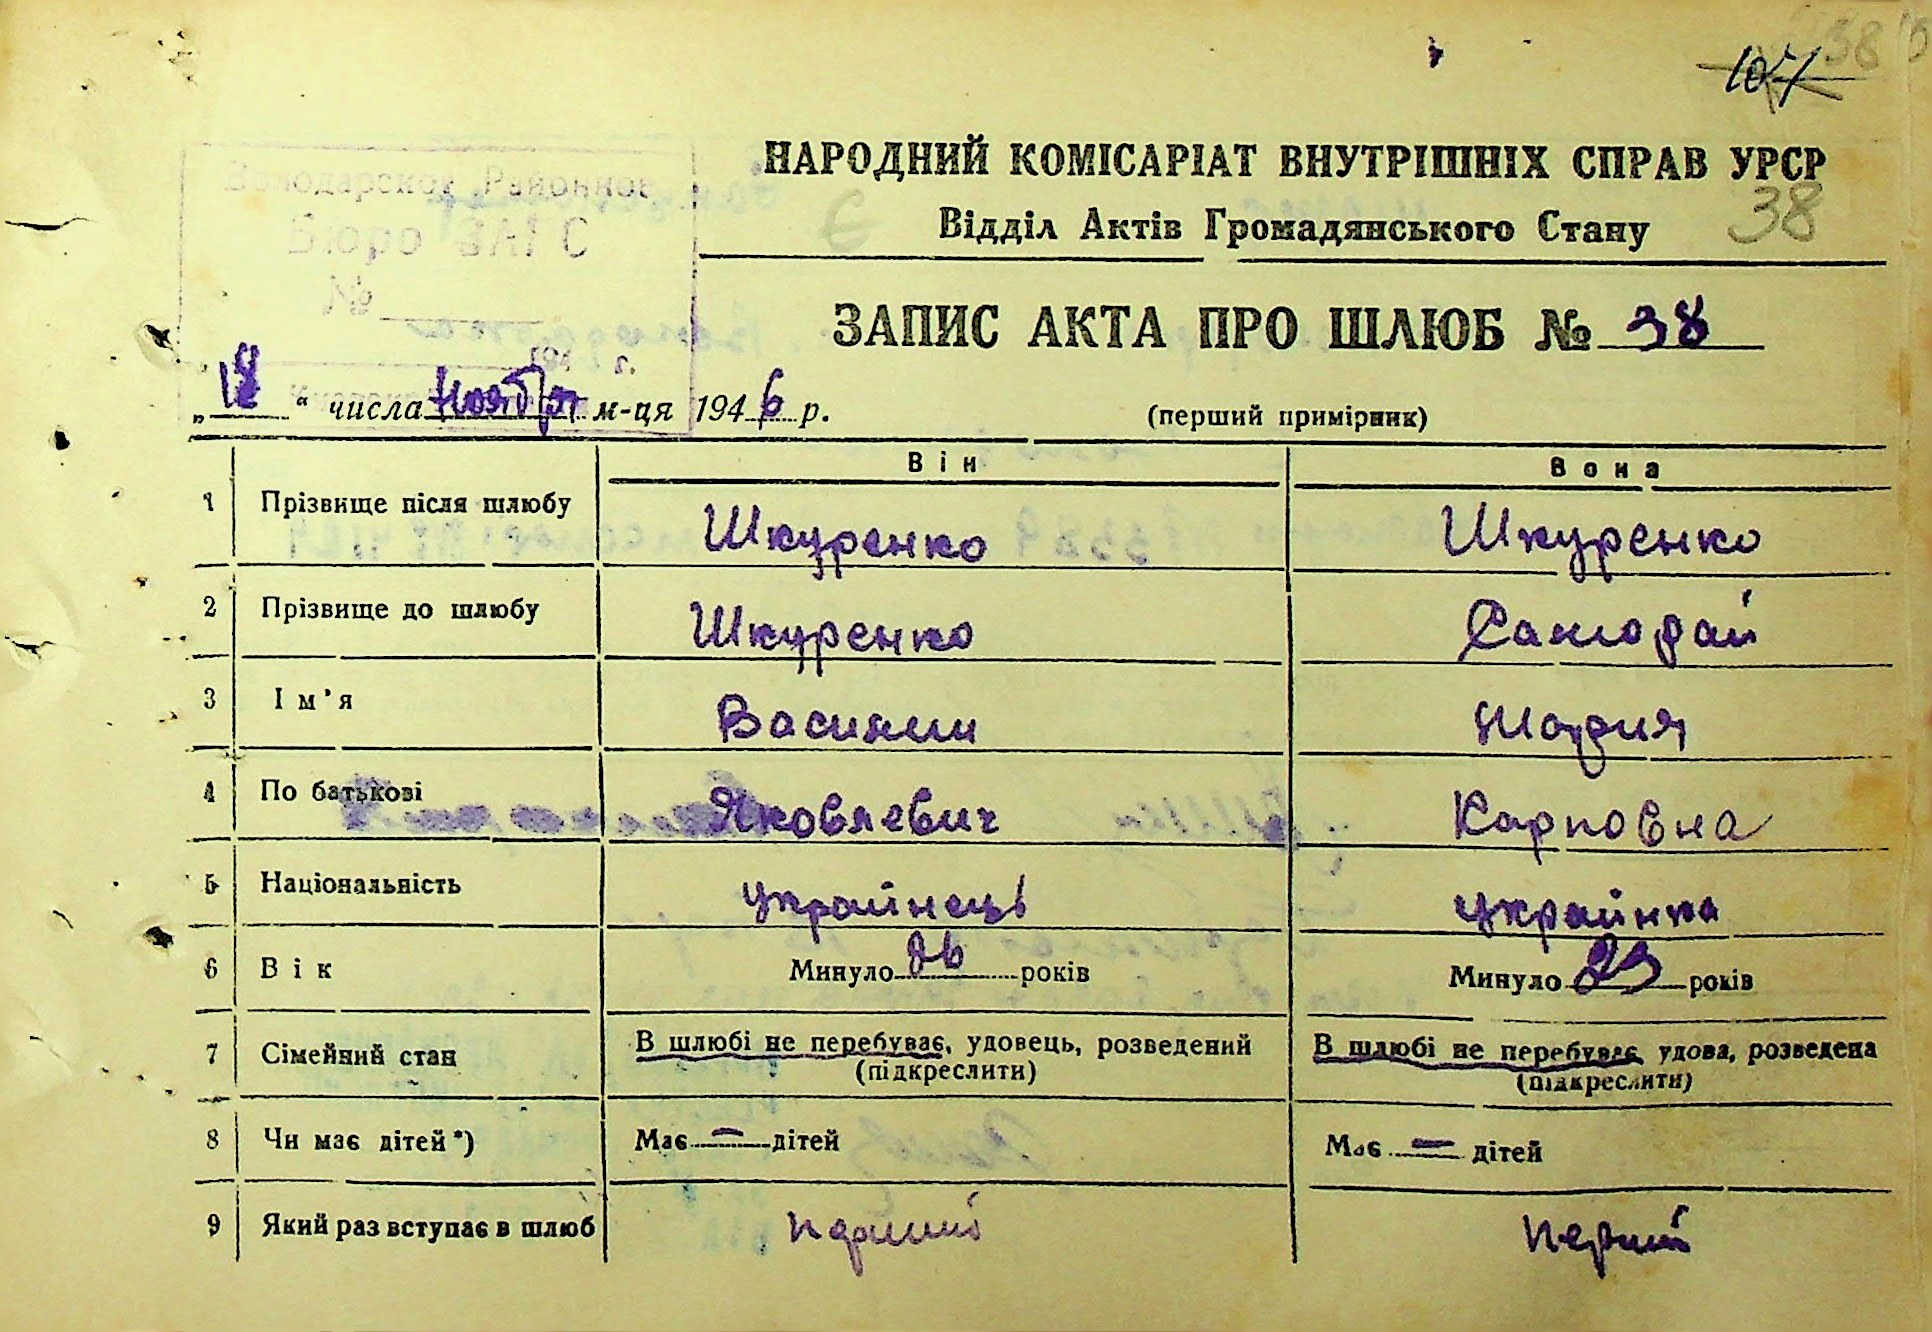 38
107
НАРОДНИЙ КОМІСАРІАТ ВНУТРІШНІХ СПРАВ УРСР
Відділ Актів Громадянського Стану
38
Володарское Районное
Бюро ЗАГС
№
ЗАПИС АКТА ПРО ШЛЮБ № 38
„18“ числа Ноября м-ця 1946 р.
(перший примірник)
Він Вона
1 Прізвище після шлюбу Шкуренко Шкуренко
2 Прізвище до шлюбу Шкуренко Самофай
3 Ім'я Василий Мария
4 По батькові Яковлевич Карповна
5 Національність Українець українка
6 Вік Минуло 26 років Минуло 23 років
7 Сімейний стан В шлюбі не перебуває, удовець, розведений В шлюбі не перебуває, удова, розведена
(підкреслити) (підкреслити)
8 Чи має дітей*) Має — дітей Має — дітей
9 Який раз вступає в шлюб перший перший